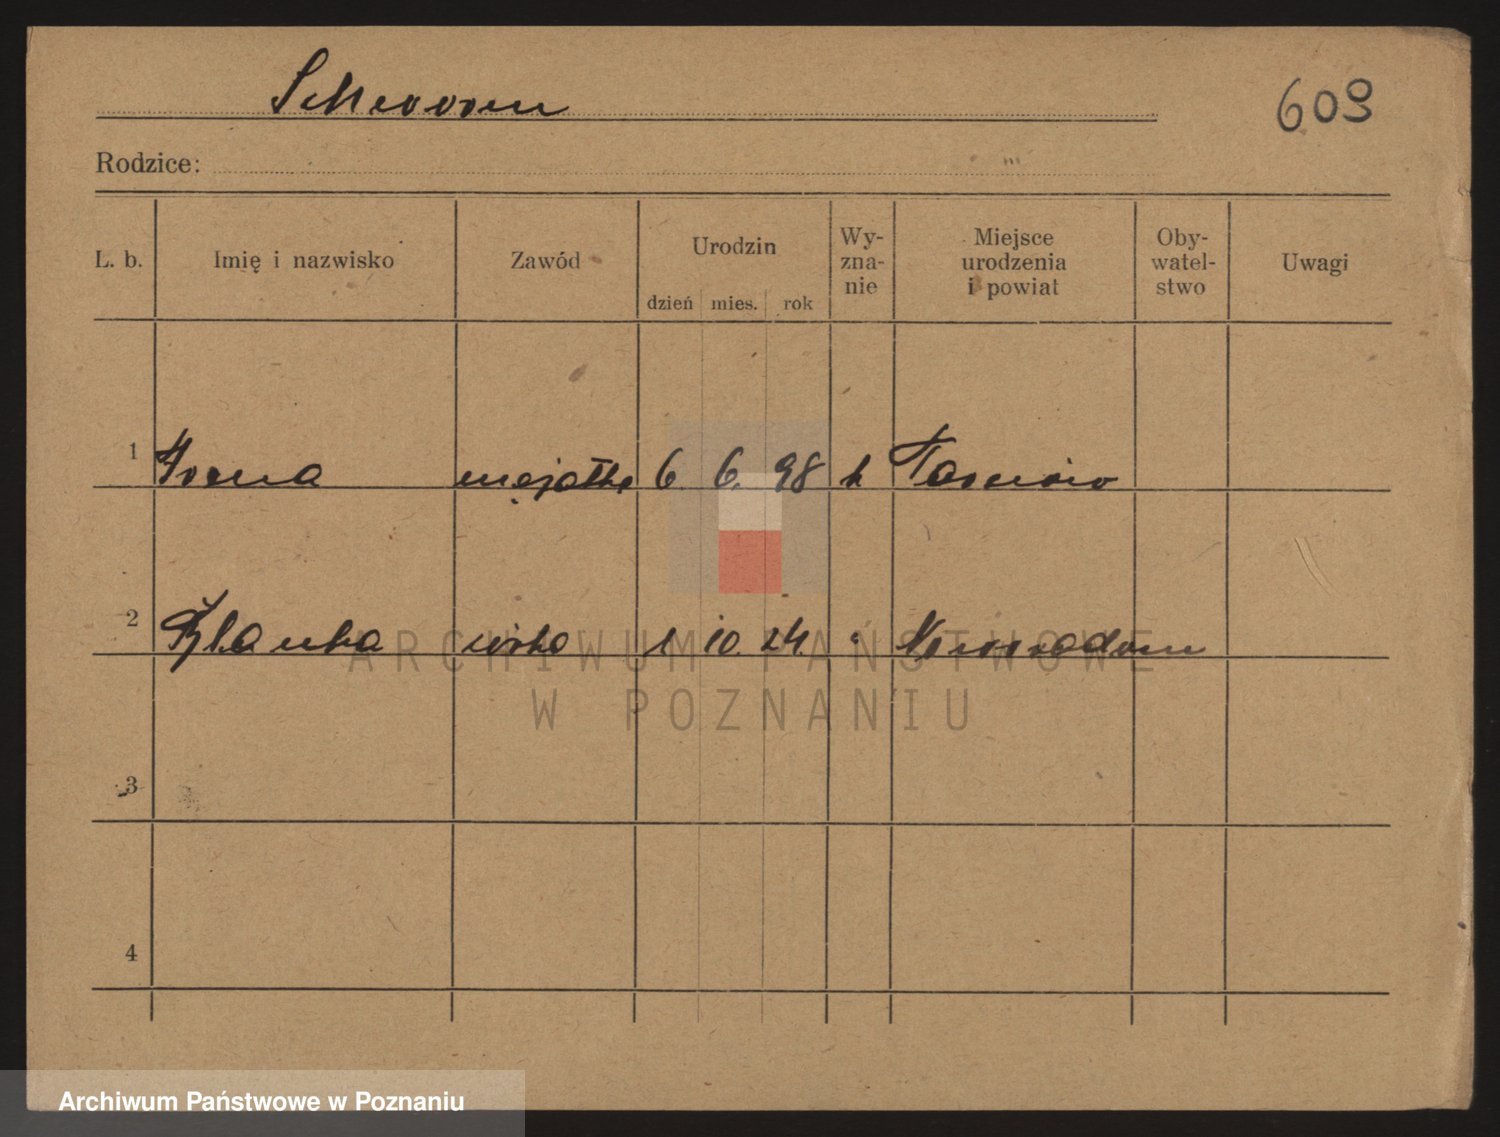 609
Rodzice:
L. b. Imię i nazwisko Zawód Urodzin dzień mies. rok Wy-zna-nie Miejsce urodzenia i powiat Oby-watel-stwo Uwagi
1 Irena mężatka 6. 6. 98 k Tarnów
2 córka 1 10. 24. "
3
4
ARCHIWUM PAŃSTWOWE
W POZNANIU
Archiwum Państwowe w Poznaniu